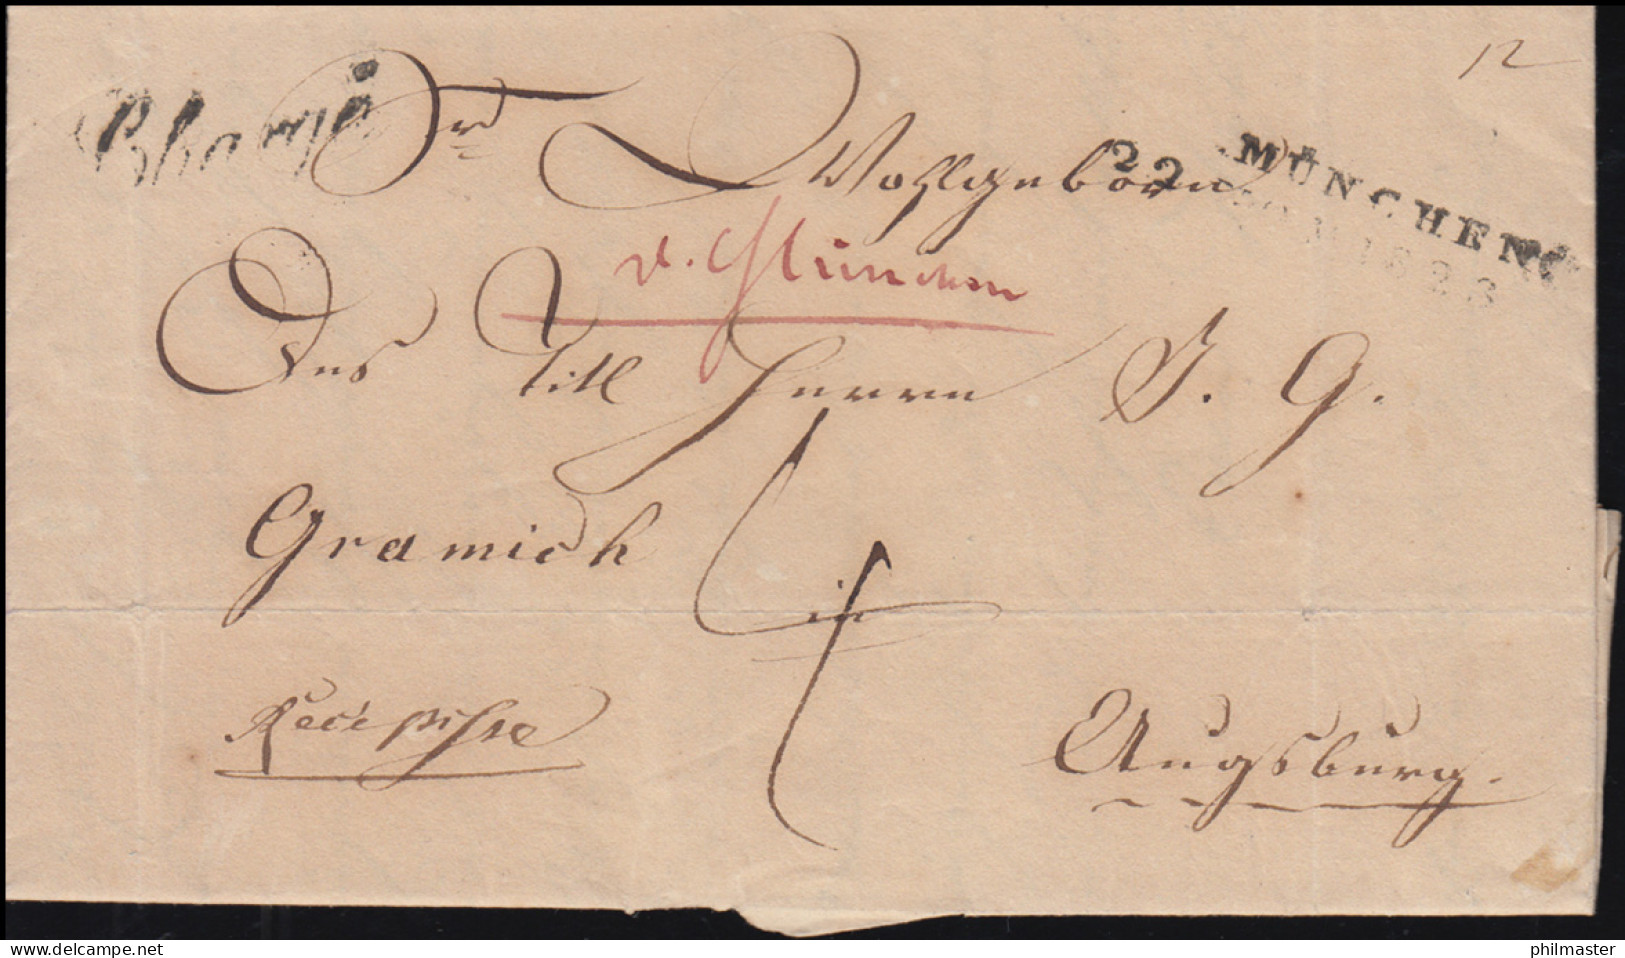 12
Chargé
Sr Wohlgeborn
22 MÜNCHEN
1823
v. München
Des Titl Herrn J. G.
Gramich
in
Recepisse
Augsburg.
www.delcampe.net
philmaster